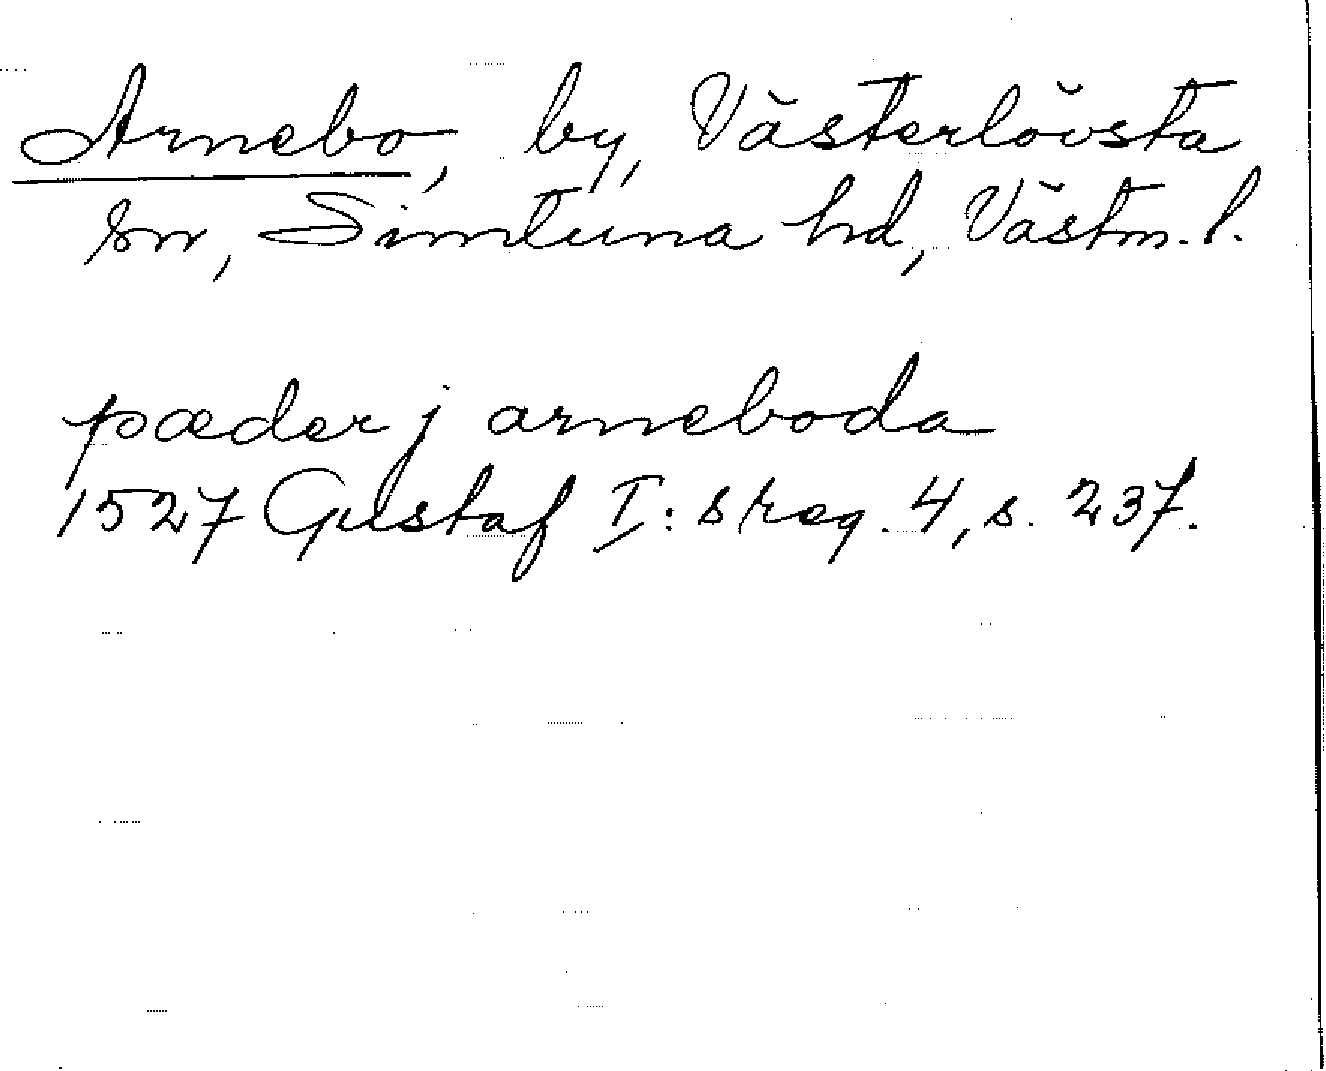 Arnebo, by, Västerlövsta
sn, Simtuna hd, Västm. l.
pæder j arneboda
1527 Gustaf I: s reg. 4, s. 237.